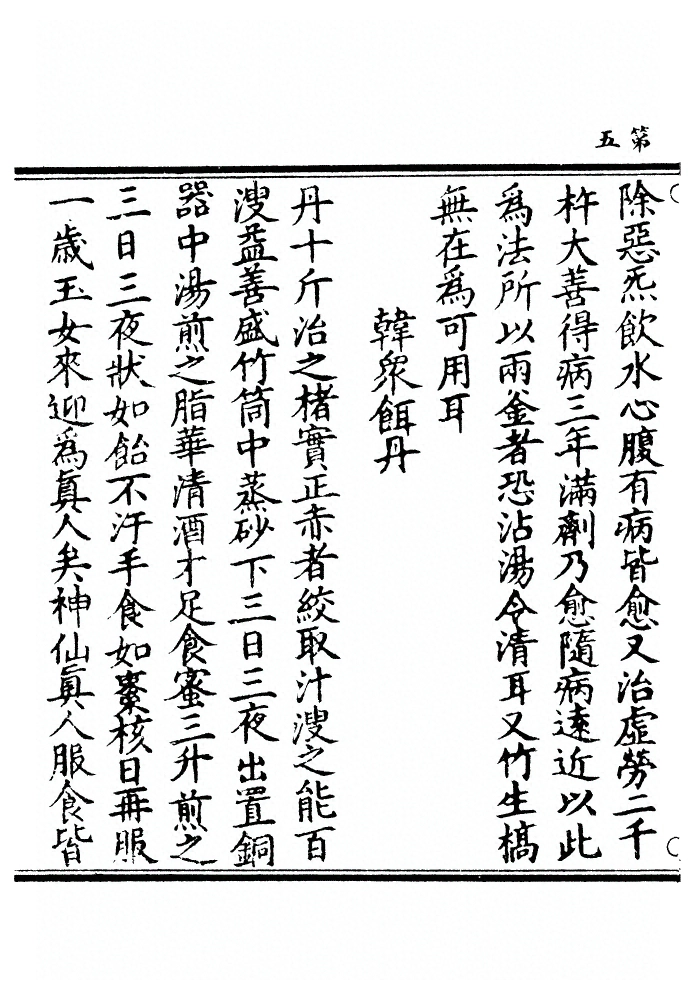 第五
除惡炁飲水心腹有病皆愈又治虛勞二千
杵大善得病三年滿劑乃愈隨病遠近以此
為法所以兩釜者恐沾湯令清耳又竹生槁
無在為可用耳
韓衆餌丹
丹十斤治之楮實正赤者絞取汁溲之能百
溲益善盛竹筒中蒸砂下三日三夜出置銅
器中湯煎之脂華清酒才足食蜜三升煎之
三日三夜狀如飴不汗手食如棗核日再服
一歲玉女來迎為真人矣神仙真人服食皆